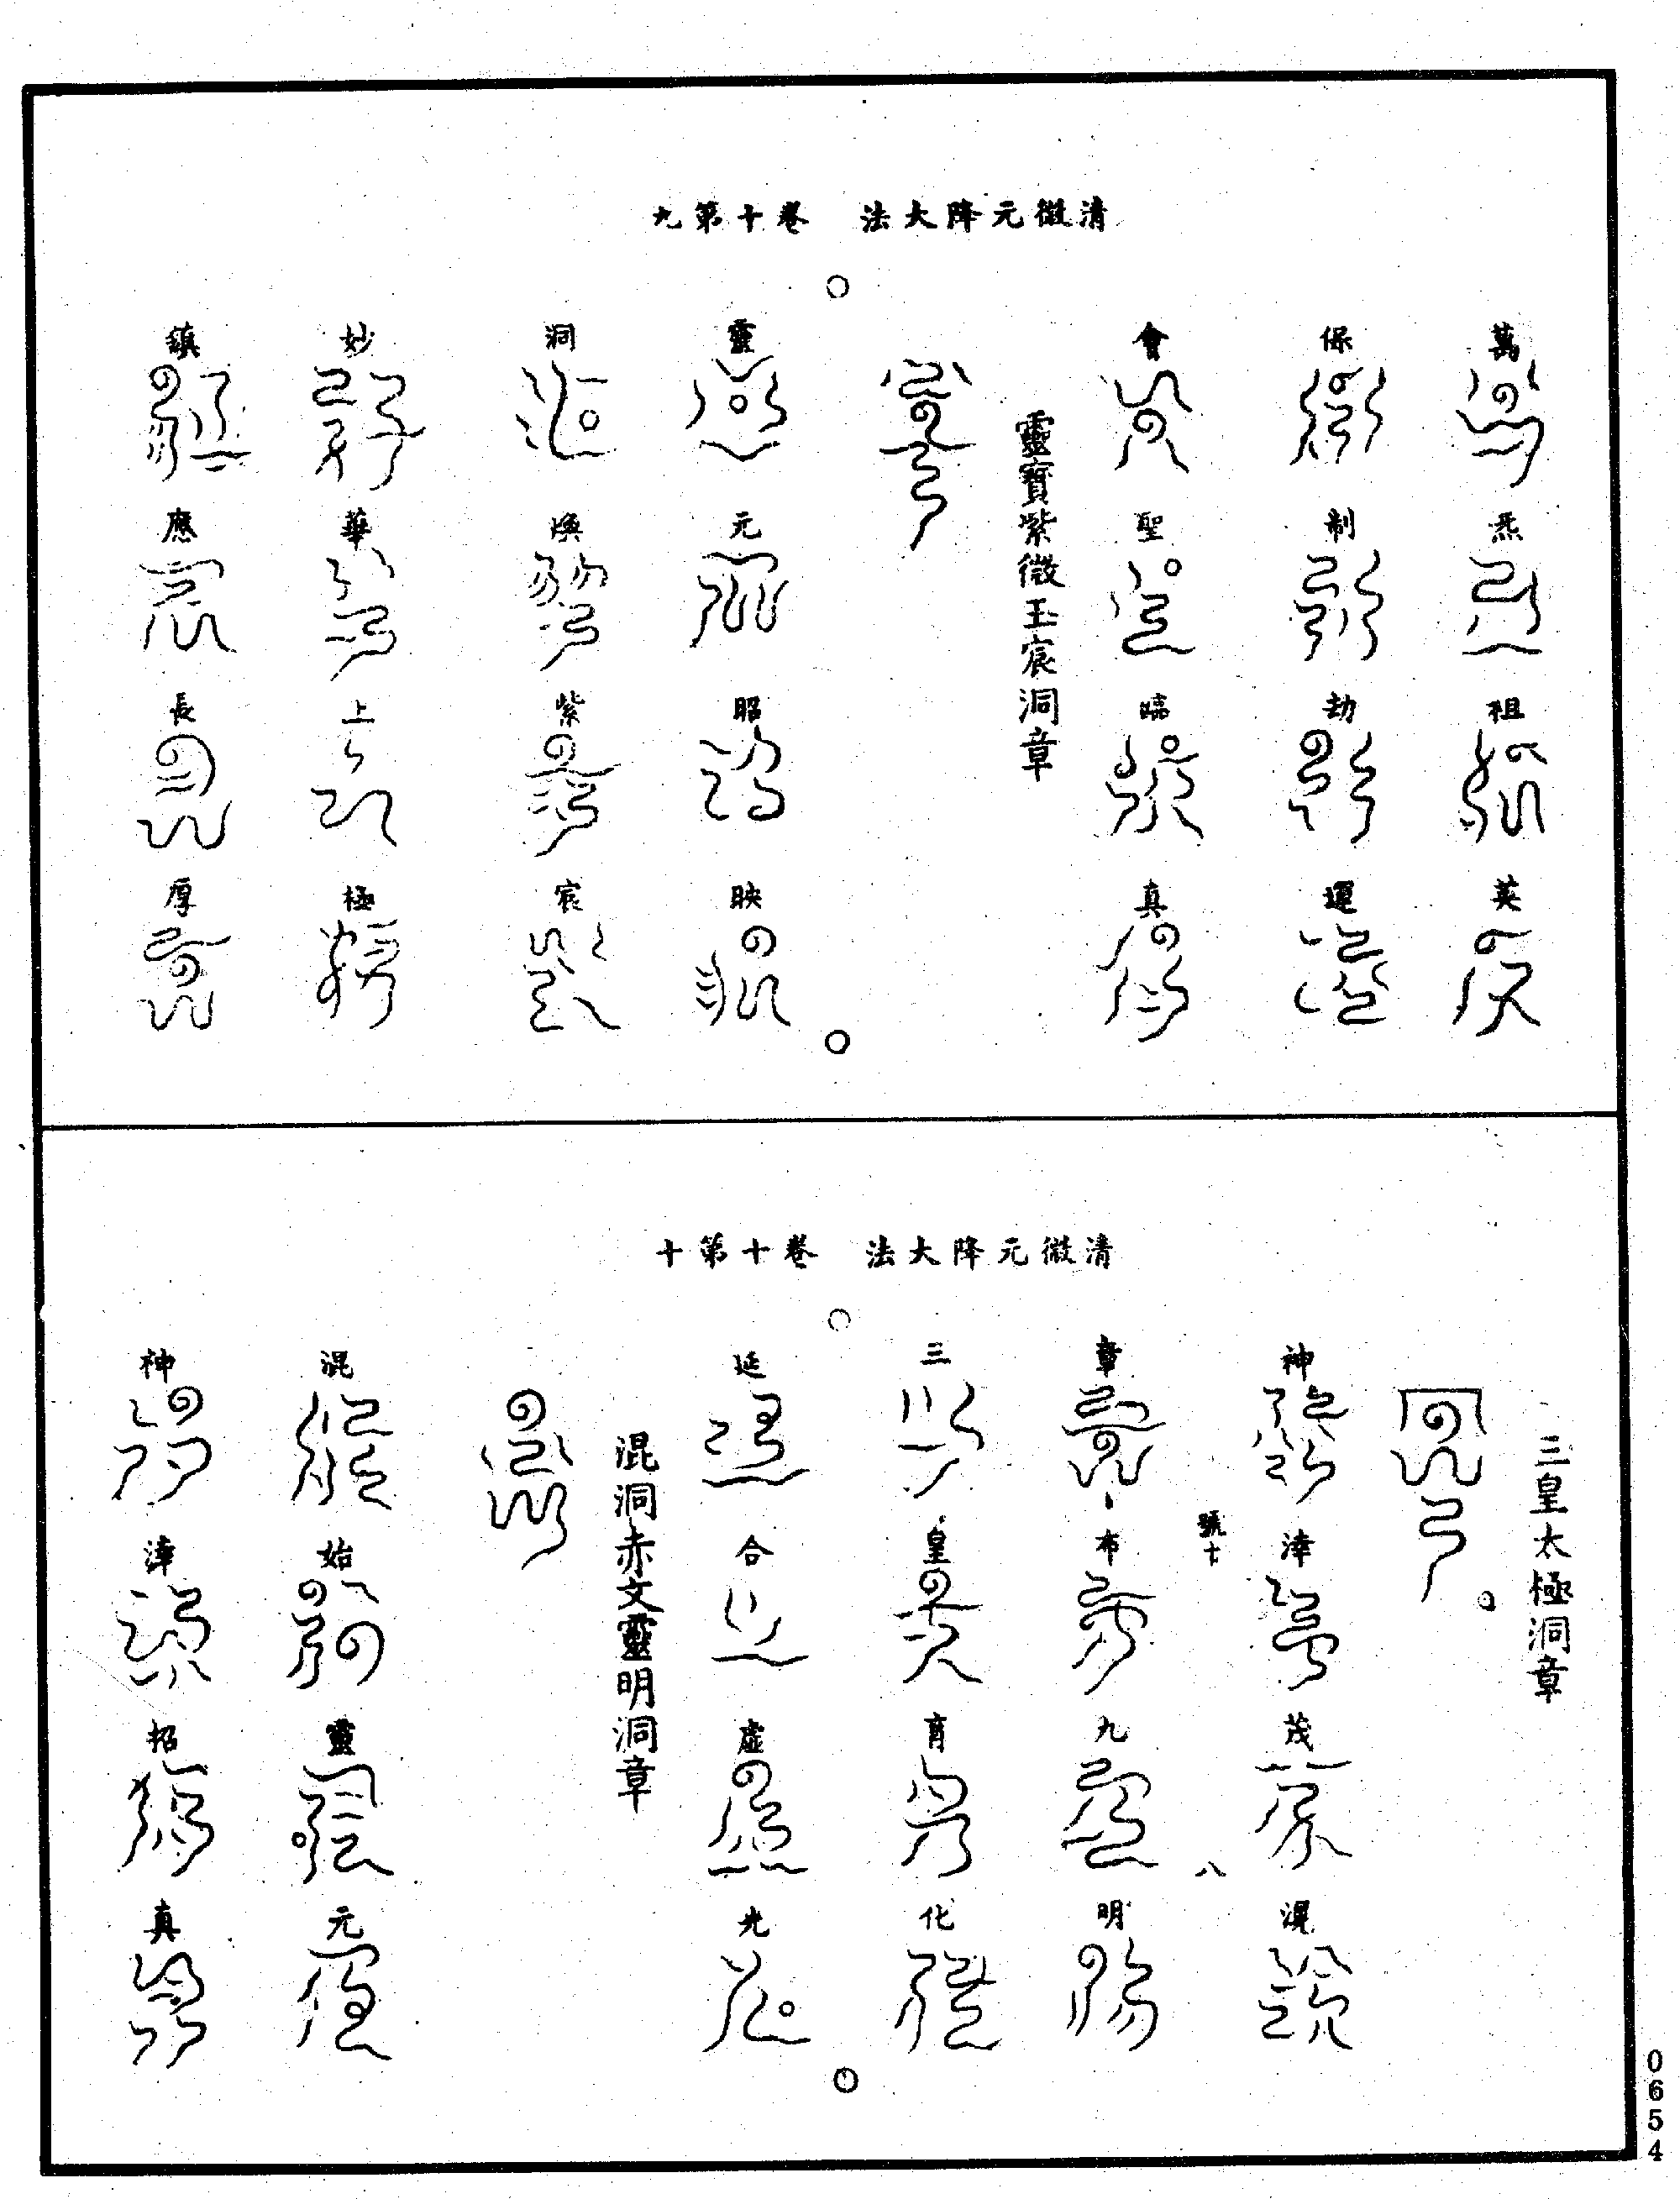 清微元降大法　卷十第九
萬炁祖英
保制劫運
會聖臨真
靈寶紫微玉宸洞章
靈元昭映
洞煥紫宸
妙華上極
鎮應長厚
清微元降大法　卷十第十
三皇太極洞章
神滓茂濕
號十
八
章布九明
三皇育化
延合虛光
混洞赤文靈明洞章
混始靈元
神滓招真
0654